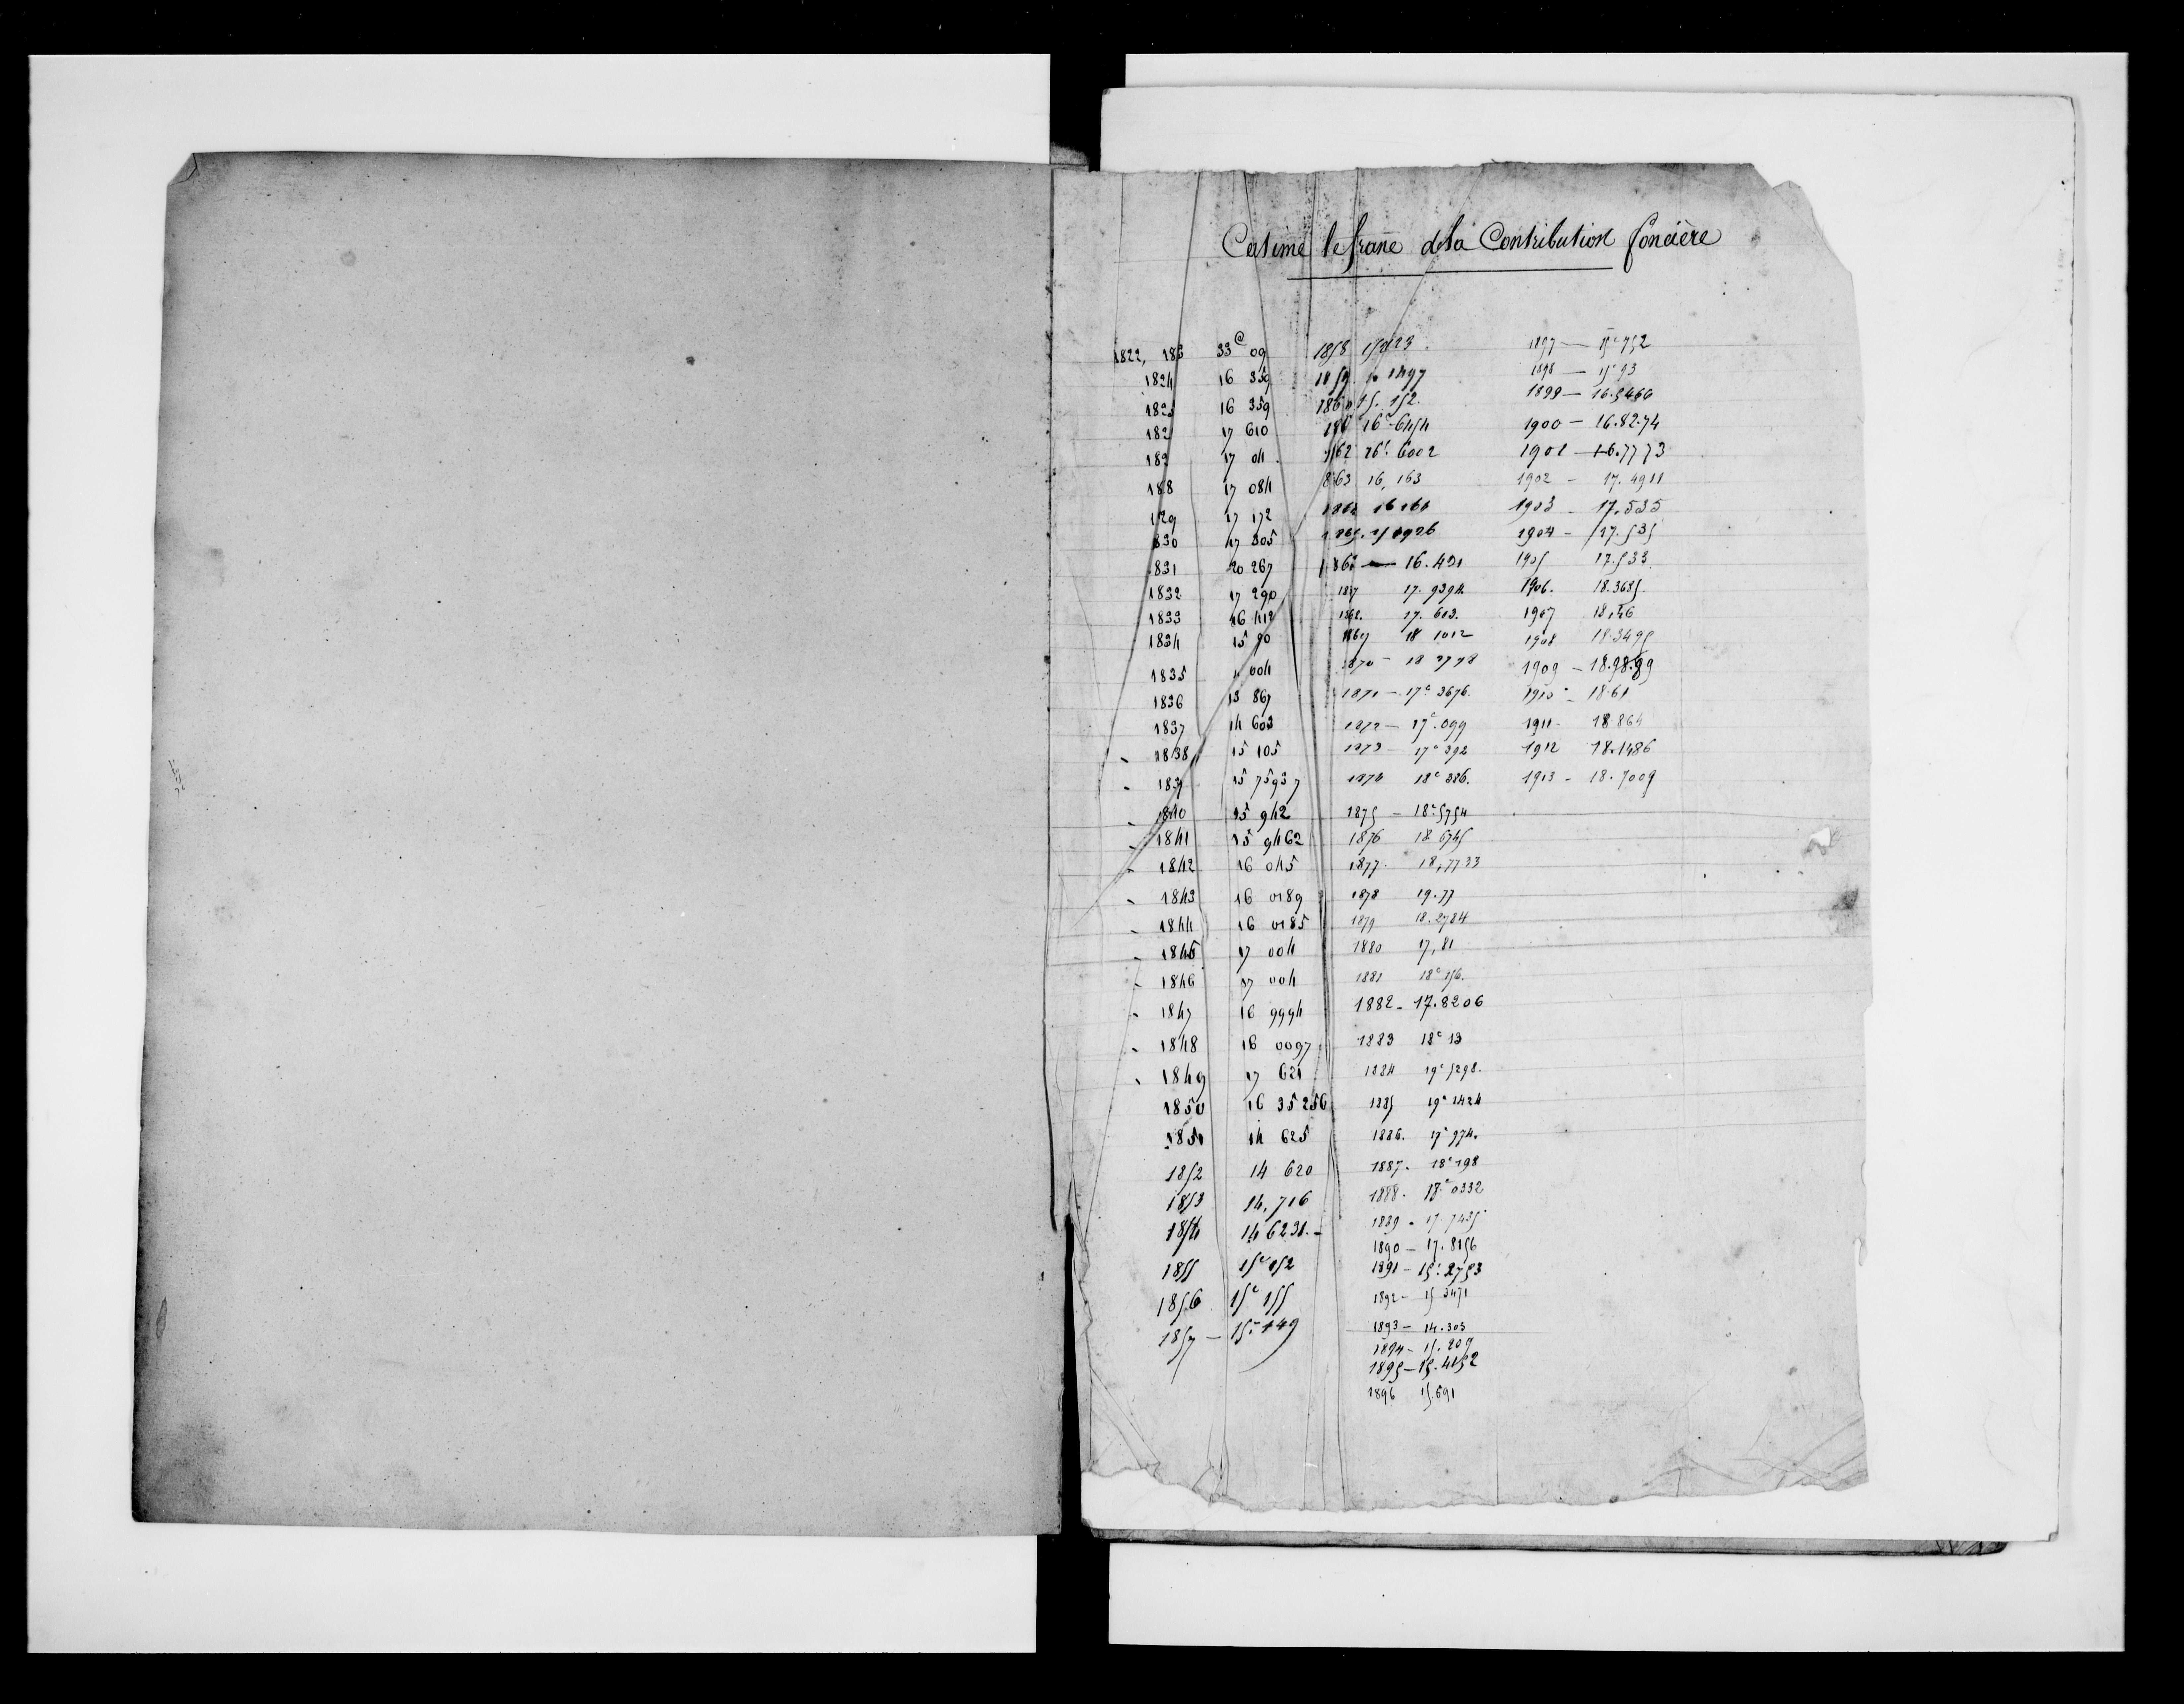 Centime le franc de la Contribution foncière
1822, 183 33c 09
1824 16 359
1825 16 359
182 17 610
182 17 04
188 17 084
129 17 172
830 17 305
831 20 267
1832 17 290
1833 16 412
1834 15 90
1835 004
1836 13 867
1837 14 603
1838 15 105
1839 15 75937
1840 15 942
1841 15 9462
1842 16 045
1843 16 0189
1844 16 0185
1845 17 004
1846 17 004
1847 16 9994
1848 16 0097
1849 17 621
1850 16 35256
1851 14 625
1852 14 620
1853 14,716
1854 14 6231.-
1855 15c 152
1856 15c 155
1857 - 15.149
1858
1859
1860 15.152.
16c 6454
62 16c 6002
863 16,163
16 161
1865. 15 0926
186 - 16.491
187 17.9394
1868. 17.603.
1869 18 1012
1870 -
1871 - 17c 3676.
1872 - 17c.099
1873 - 17c 392
1874 18c 386.
1875 - 18c 5754
1876 18 6745
1877. 18,7733
1878 19.77
1879 18.2784
1880 17,81
1881 18c 156.
1882 - 17.8206
1883 18c 13
1884 19c 5298.
1885 19c 1424
1886. 17c 974.
1887. 18c 198
1888. 18c 0332
1889 - 17.7435
1890 - 17.8156
1891 - 15c.2753
1892 - 15 3471
1893 - 14.303
1894 - 15.209
1895 - 15.4152
1896 15.691
1897 - 15c 752
1898 - 15c 93
1899 - 16.5466
1900 - 16.82.74
1901 - 16.7773
1902 - 17.4911
1903 - 17.535
1904 - 17.535
1905 17.533
1906. 18.3685.
1907 18,46
1908 18.3495
1909 - 18.98.89
1910 - 18.61
1911 - 18.864
1912 18.1486
1913 - 18.7009